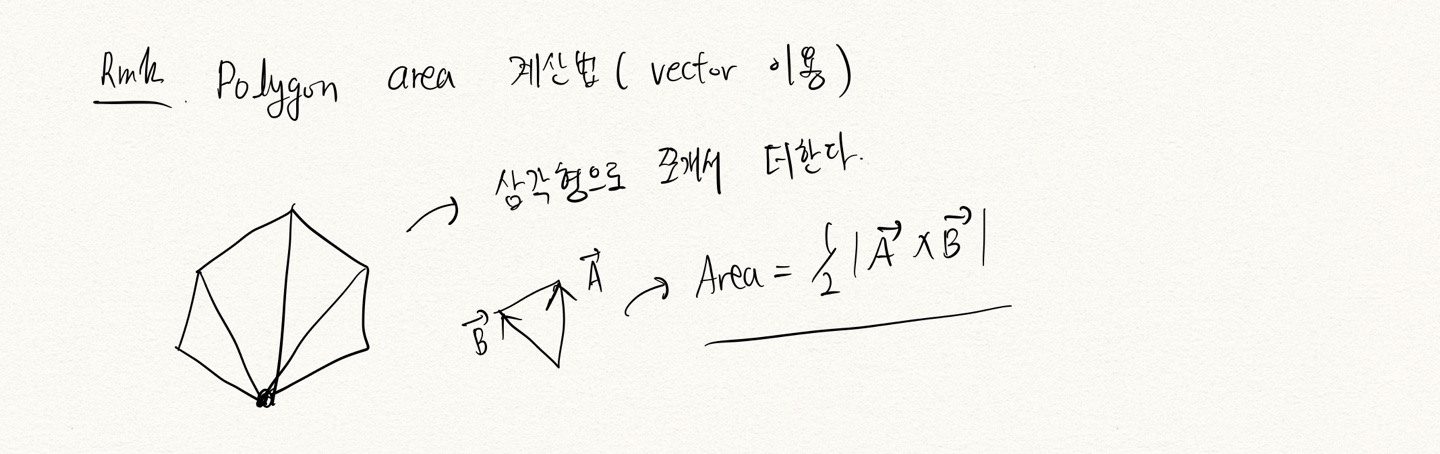 Rmk. Polygon area 계산법 ( vector 이용 )
삼각형으로 쪼개서 더한다.
A⃗
B⃗
Area = 1/2 | A⃗ × B⃗ |